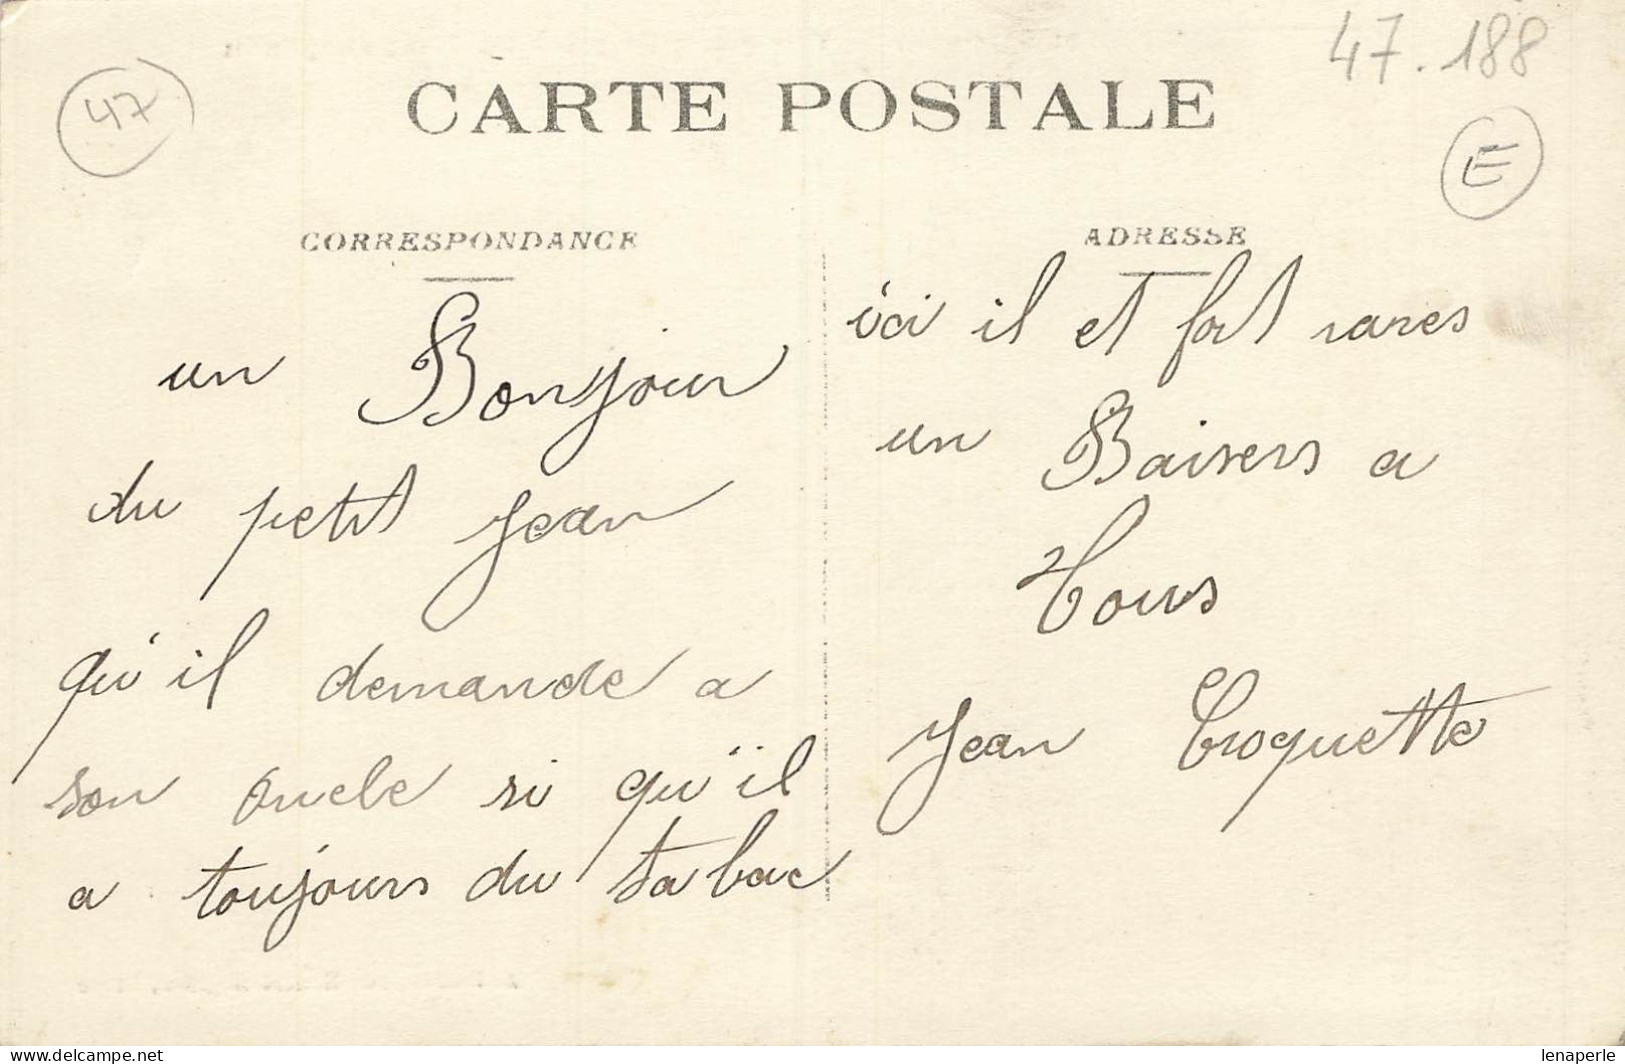 47
CARTE POSTALE
47.188
E
CORRESPONDANCE
un Bonjour
du petit jean
qu'il demande a
son oncle si qu'il
a toujours du tabac
ADRESSE
ici il et fort rares
un Baisers a
Tous
Jean Croquette
lenaperle